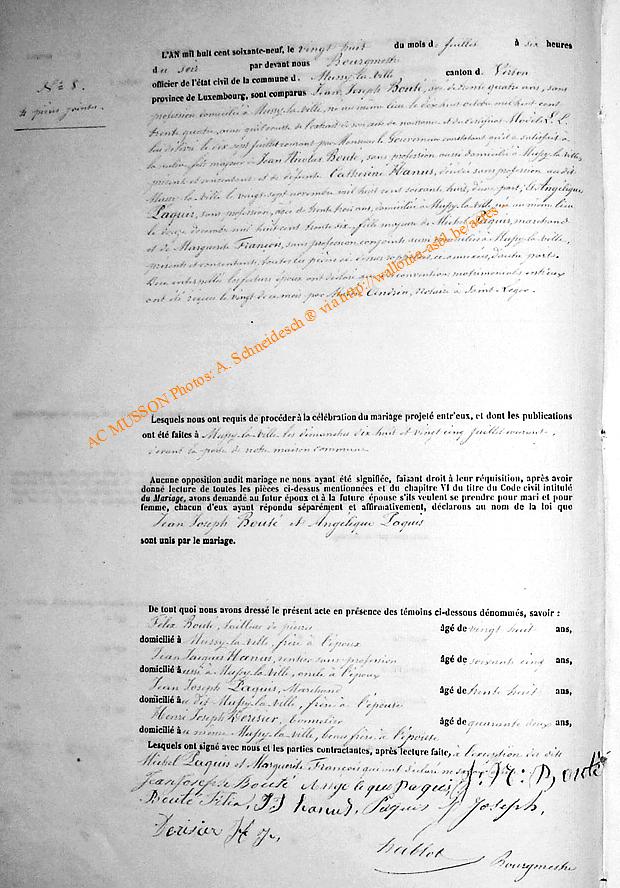 L'AN mil huit cent soixante-neuf, le vingt huit du mois de juillet à six heures
du soir par devant nous Bourgmestre
officier de l'état civil de la commune de Mussy-la-ville canton de Virton
province de Luxembourg, sont comparus Jean Joseph Bouté, âgé de trente quatre ans, sans
N° 8.
4 pièces jointes
profession domicilié à Mussy-la-ville, né au même lieu le dix huit octobre mil huit cent
trente quatre, ainsi qu'il conste de l'extrait de son acte de naissance et du certificat Modèle L.L.
lui délivré le dix sept juillet courant par Monsieur le Gouverneur constatant qu'il a satisfait à
fils majeur de Jean Nicolas Bouté, sans profession aussi domicilié à Mussy-la-ville,
présent et consentant et de défunte Catherine Hanus, décédée sans profession au dit
Mussy-la-ville le vingt sept novembre mil huit cent soixante huit, d'une part, & Angélique
Paquis, sans profession, âgée de trente trois ans, domiciliée à Mussy-la-ville, née au même lieu
le douze décembre mil huit cent trente six, fille majeure de Michel Paquis, marchand
et de Marguerite François, sans profession conjoints domiciliés à Mussy-la-ville,
présents et consentants, d'autre part.
les futurs époux ont déclaré que les conventions matrimoniales entr'eux
ont été reçues le vingt de ce mois par Maître notaire à Saint-Léger.
AC MUSSON Photos: A. Schneidesch ® via http://wallonia-asbl.be/actes/
Lesquels nous ont requis de procéder à la célébration du mariage projeté entr'eux, et dont les publications
ont été faites à Mussy-la-ville les dimanches dix huit et vingt cinq juillet courant,
devant la porte de notre maison commune.
Aucune opposition audit mariage ne nous ayant été signifiée, faisant droit à leur réquisition, après avoir
donné lecture de toutes les pièces ci-dessus mentionnées et du chapitre VI du titre du Code civil intitulé
du Mariage, avons demandé au futur époux et à la future épouse s'ils veulent se prendre pour mari et pour
femme, chacun d'eux ayant répondu séparément et affirmativement, déclarons au nom de la loi que
Jean Joseph Bouté et Angélique Paquis
sont unis par le mariage.
De tout quoi nous avons dressé le présent acte en présence des témoins ci-dessous dénommés, savoir :
Félix Bouté, tailleur de pierres âgé de vingt huit ans,
domicilié à Mussy-la-ville, frère à l'époux
Jean Jacques Hanus, rentier sans profession âgé de soixante cinq ans,
domicilié aussi à Mussy-la-ville, oncle à l'époux
Jean Joseph Paquis, Marchand âgé de trente huit ans,
domicilié au dit Mussy-la-ville, frère à l'épouse
Henri Joseph Derisier, âgé de quarante deux ans,
domicilié au même Mussy-la-ville, beau frère à l'épouse
Lesquels ont signé avec nous et les parties contractantes, après lecture faite, à l'exception des dits
Michel Paquis et Marguerite François qui ont déclaré ne savoir J: N: Bouté
Jean Joseph Bouté Angelique Paquis
Bouté Félix, J J hanus, Paquis J Joseph,
Derisier H J,
hallot
Bourgmestre